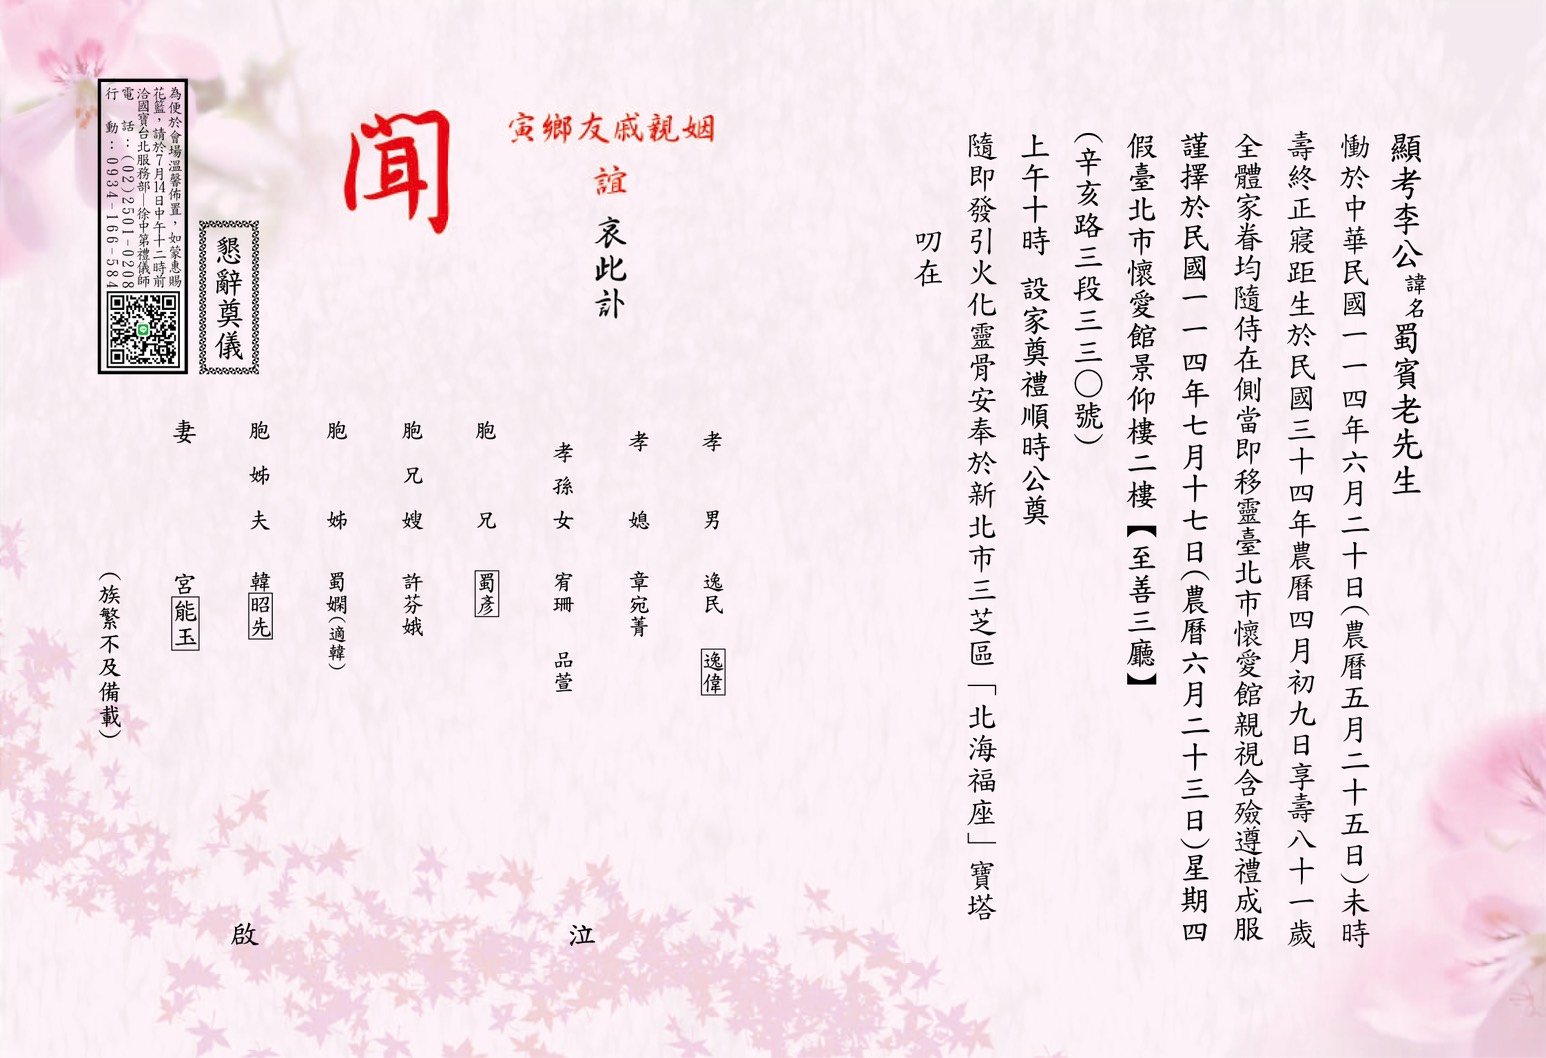 顯考李公諱名蜀賓老先生
慟於中華民國一一四年六月二十日(農曆五月二十五日)未時
壽終正寢距生於民國三十四年農曆四月初九日享壽八十一歲
全體家眷均隨侍在側當即移靈臺北市懷愛館親視含殮遵禮成服
謹擇於民國一一四年七月十七日(農曆六月二十三日)星期四
假臺北市懷愛館景仰樓二樓【至善三廳】
(辛亥路三段三三〇號)
上午十時 設家奠禮順時公奠
隨即發引火化靈骨安奉於新北市三芝區「北海福座」寶塔
叨在
寅鄉友戚親姻
誼
哀此訃
聞
孝男 逸民 逸偉
孝媳 章宛菁
孝孫女 宥珊 品萱
胞兄 蜀彥
胞兄嫂 許芬娥
胞姊 蜀嫻(適韓)
胞姊夫 韓昭先
妻 宮能玉
(族繁不及備載)
泣
啟
懇辭奠儀
為便於會場溫馨佈置，如蒙惠賜
花籃，請於7月14日中午十二時前
洽國寶台北服務部—徐中第禮儀師
電話：(02)2501-0208
行動：0934-166-584